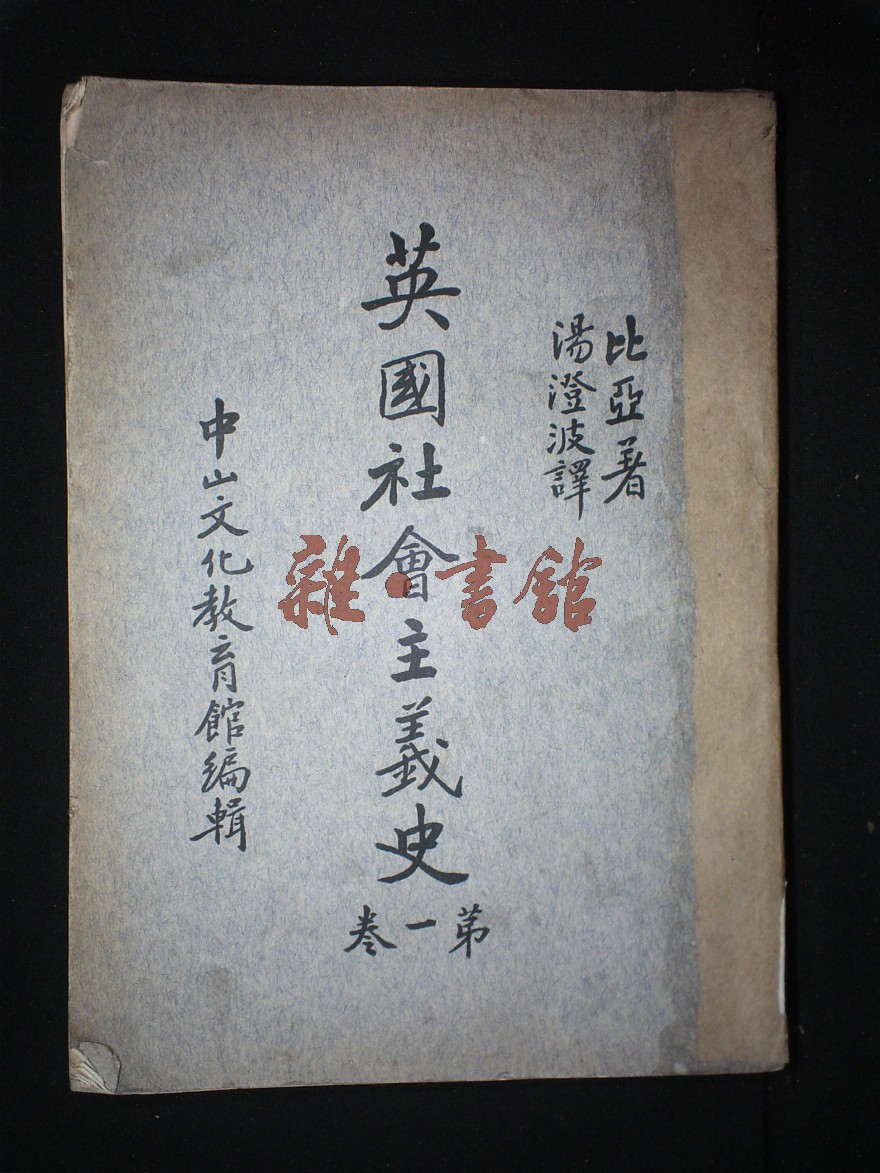 比亞著
湯澄波譯
英國社會主義史
第一卷
中山文化教育館編輯
雜·書館